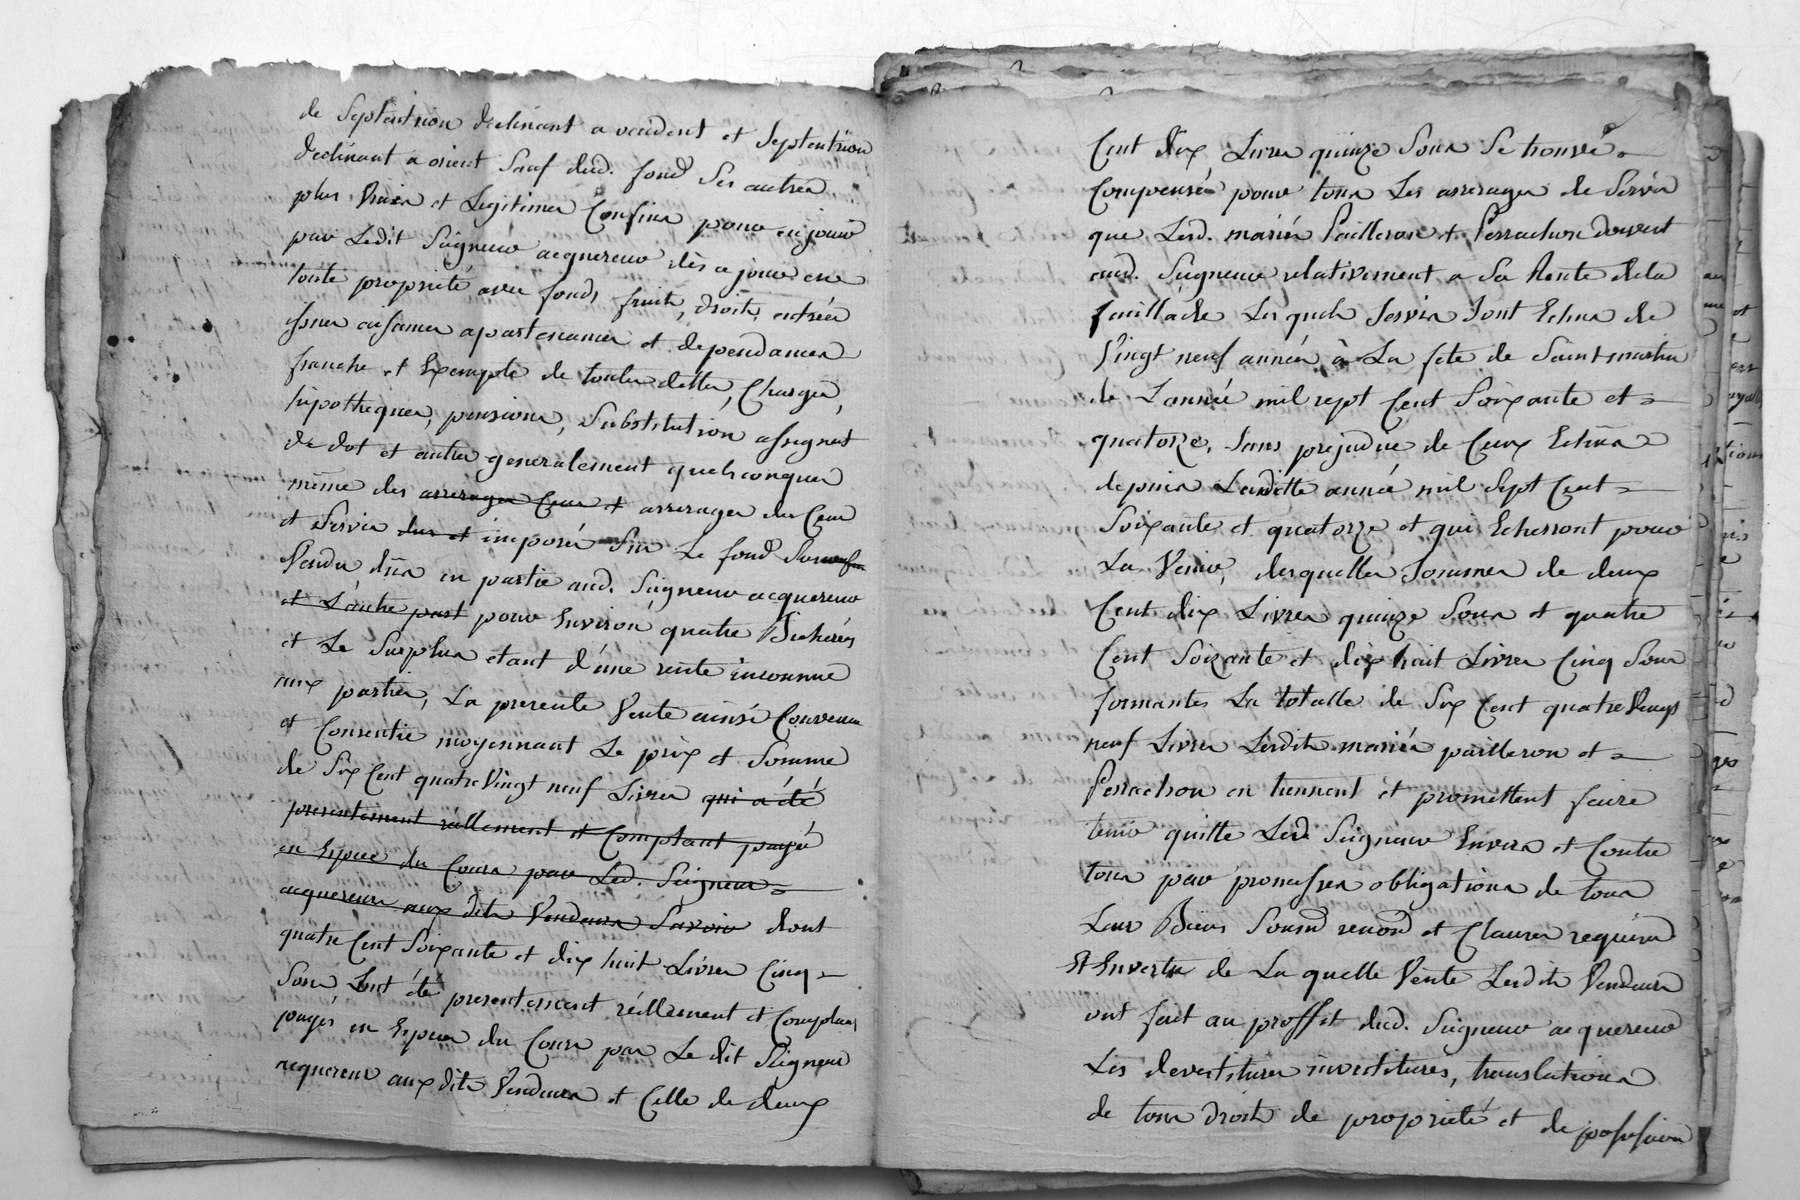 de Septentrion declinant a occident et Septentrion
declinant a orient Sauf dud. fond Ses autres
plus Vrais et Legitimes Confins pour en jouir
par Ledit Seigneur acquereur dès ajour en
toute propriété avec fonds fruits, droits, entrées
issues aisances apartenances et dependances
franche et Exempte de toutes dettes, Charges,
hipotheques, pensions, Substitution assignat
de dot et autres generalement quelconques
même des arrerages Cens et arrerages des Cens
et Servis dus et imposés Sur Le fond
Vendu dûs en partie aud. Seigneur acquereur
et L'autre part pour Environ quatre Bicherées
et Le Surplus etant d'une rente inconnue
aux parties, La presente Vente ainsi Convenue
et Consentie moyennant Le prix et Somme
de Six Cent quatre Vingt neuf Livres qui a été
presentement réellement et Comptant payée
en Especes du Cours par Led. Seigneur
acquereur aux dits Vendeurs Savoir dont
quatre Cent Soixante et dix huit Livres Cinq
Sous Lont été presentement réellement et Comptant
payés en Especes du Cours par Le dit Seigneur
acquereur aux dits Vendeurs et Celle de deux
Cent dix Livres quinze Sous Se trouve
Compensée pour tous Les arrerages de Servis
que Lesd. mariés Pailleron et Perrachon doivent
aud. Seigneur relativement a Sa Rente de la
feuillade Les quels Servis Sont Echus de
Vingt neuf années à La fete de Saint martin
de L'année mil sept Cent Soixante et
quatorze, Sans prejudice de Ceux Echus
depuis Laditte année mil Sept Cent
Soixante et quatorze et qui Echerront pour
La Venir, desquelles Sommes de deux
Cent dix Livres quinze Sous et quatre
Cent Soixante et dix huit Livres Cinq Sous
formantes La totalle de Six Cent quatre Vingt
neuf Livres Lesdits mariés pailleron et
Perrachon en tiennent et promettent faire
tenir quitte Led. Seigneur Envers et Contre
tous par promesses obligations de tous
Leur Biens Soumd renond et Clauses requises
Et Envertu de La quelle Vente Lesdits Vendeurs
ont fait au proffit dud. Seigneur acquereur
Les devestitures investitures, translations
de tous droits de propriété et de possession